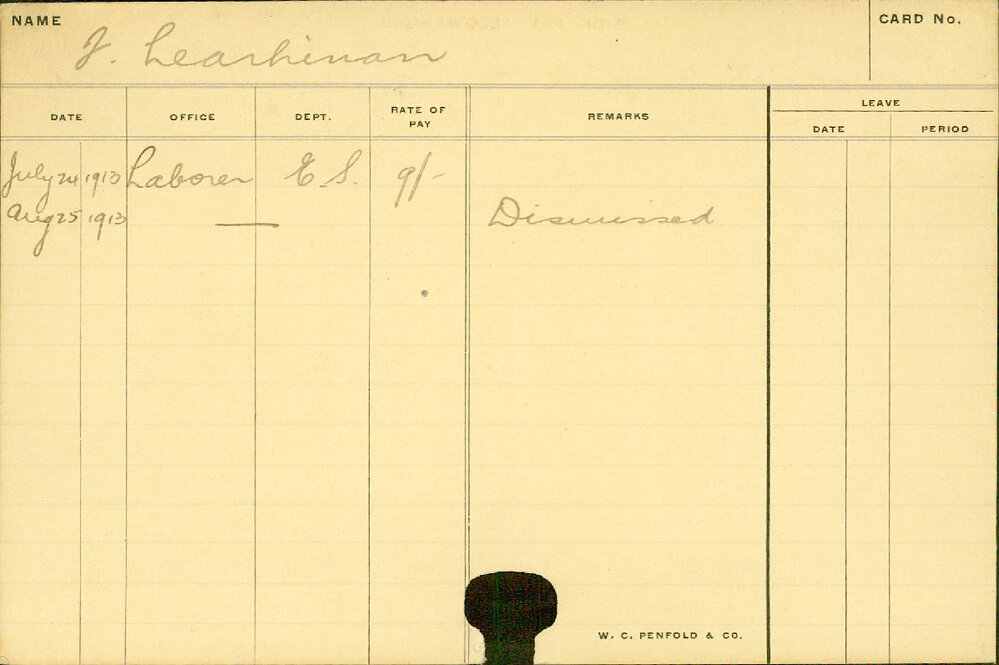 NAME
CARD No.
J. Leashinan
DATE OFFICE DEPT. RATE OF PAY REMARKS LEAVE
DATE PERIOD
July 24 1913 Laborer E S. 9/-
Aug 25 1913 — Dismissed
W. C. PENFOLD & CO.